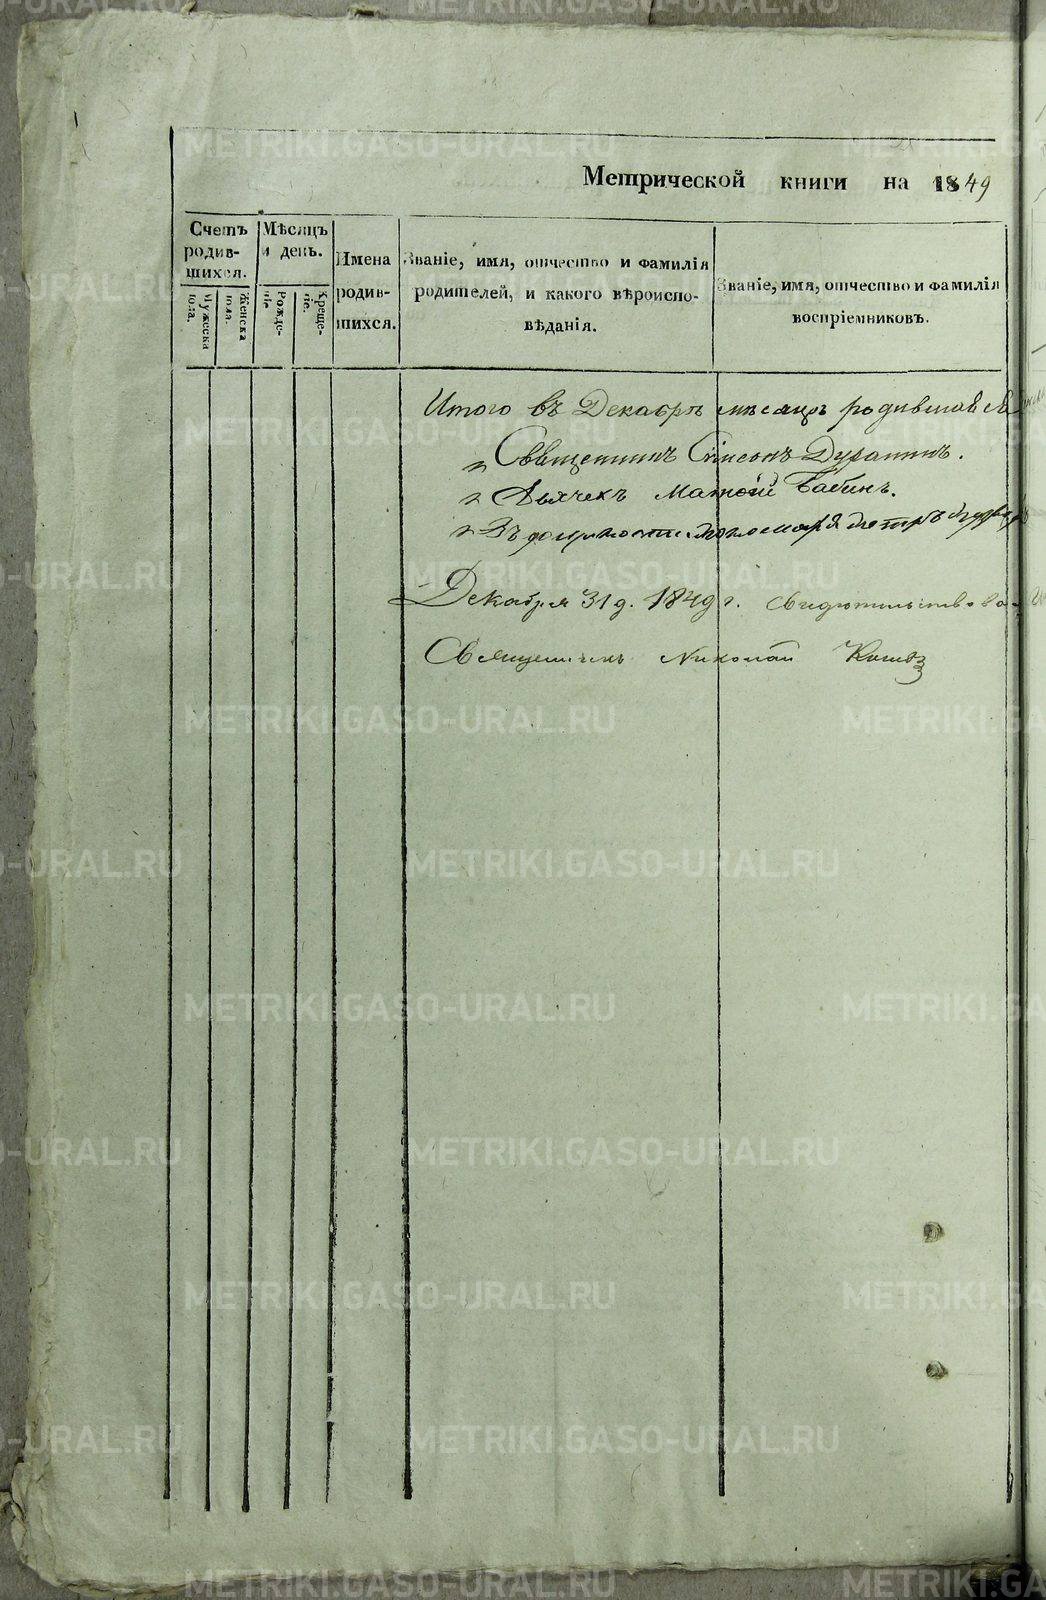 Метрической книги на 1849
Счетъ родив-шихся.
Мѣсяцъ и день.
Имена родив-шихся.
Званіе, имя, отчество и фамилія
родителей, и какого вѣроиспо-
вѣданія.
Званіе, имя, отчество и фамилія
воспріемниковъ.
Мужеска пола.
Женска пола.
Рожде-ніе.
Креще-ніе.
Итого въ Декабрѣ мѣсяцѣ родившихся
Священникъ Симеонъ
Дьячекъ Матфій Бабинъ.
Въ должности пономаря Петръ
Декабря 31 д. 1849 г. свидѣтельствова
Священникъ Николай
METRIKI.GASO-URAL.RU